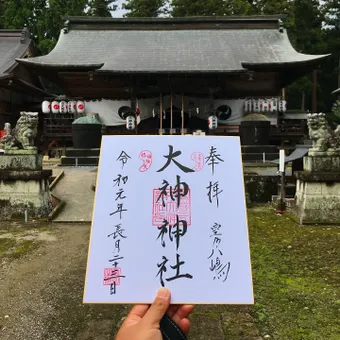 奉拝
室の八嶋
大神神社
令和元年長月二十三日